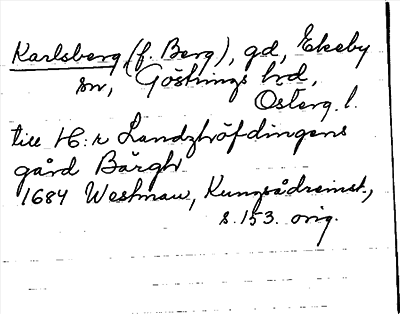 Karlsberg (f. Berg), gd, Ekeby
sn, Göstrings hrd,
Österg. l.
till H:r Landzhöfdingens
gård Bärgh
1684 Westman, Kungsådreinst.,
s. 153. orig.